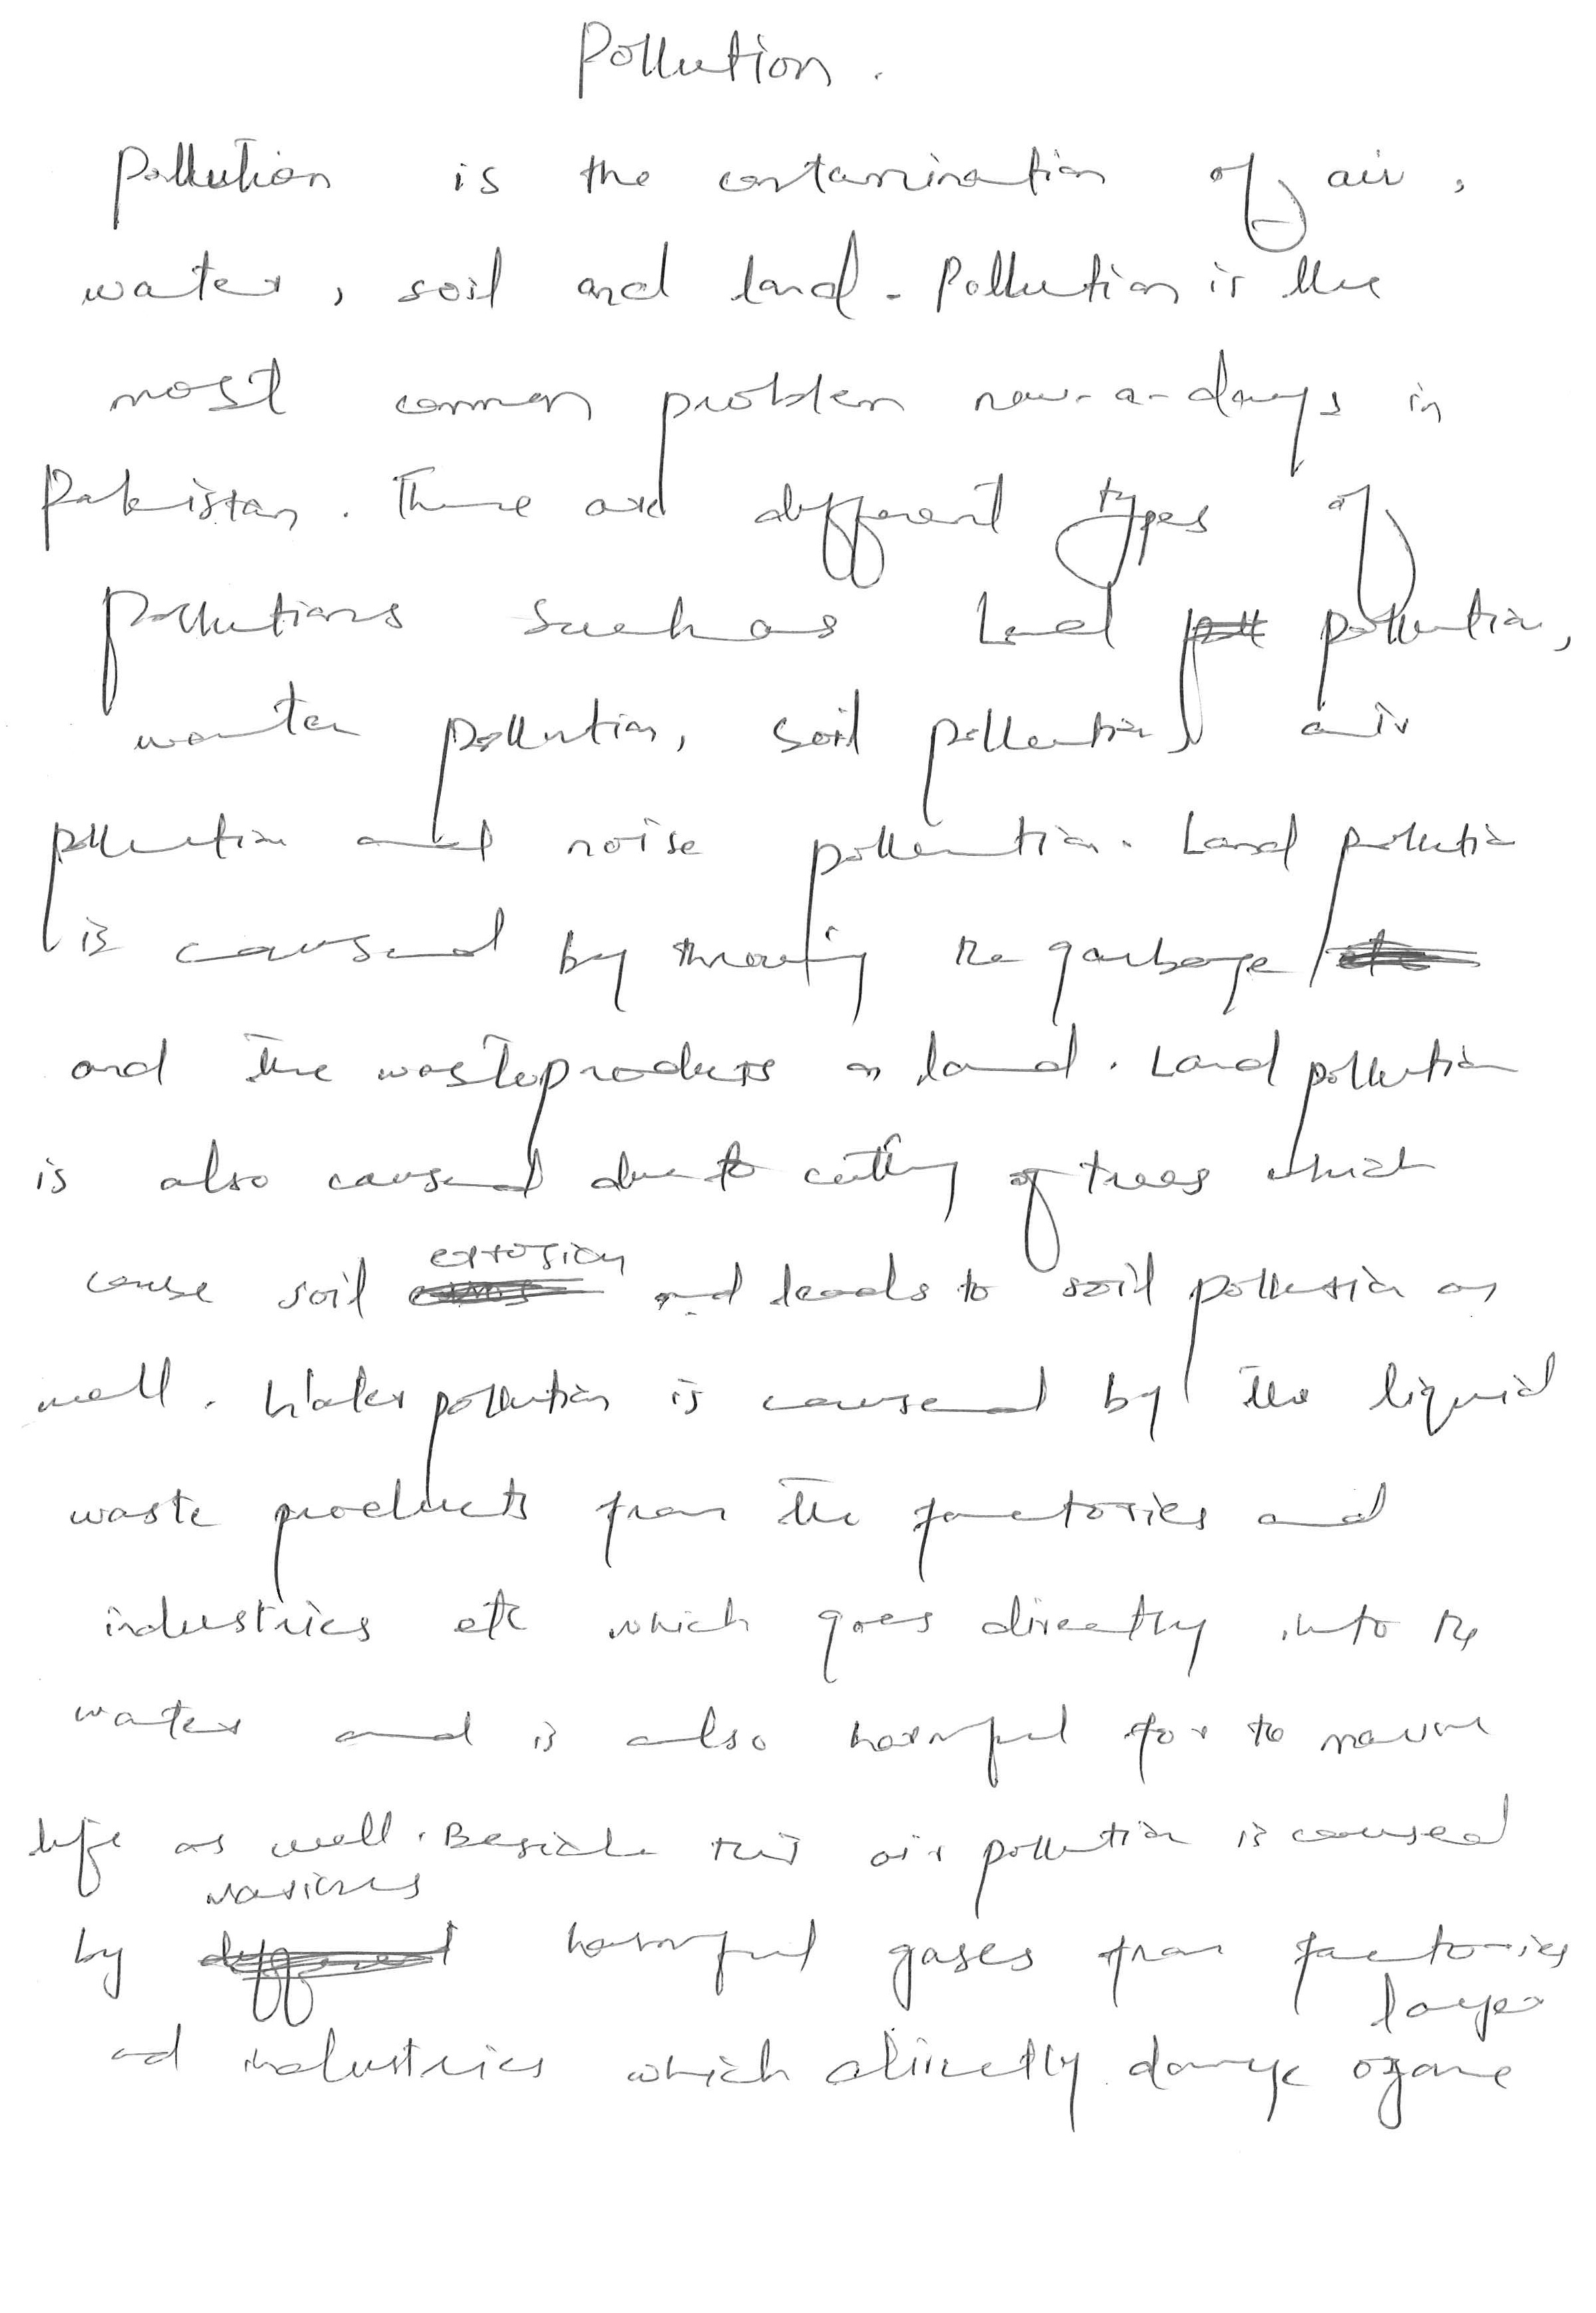 Pollution.
Pollution is the contamination of air,
water, soil and land. Pollution is the
most common problem now-a-days in
Pakistan. There are different types of
pollutions such as land pollution,
water pollution, soil pollution, air
pollution and noise pollution. Land pollution
is caused by throwing the garbage
and the waste products on land. Land pollution
is also caused due to cutting of trees which
erosion
cause soil and leads to soil pollution as
well. Water pollution is caused by the liquid
waste products from the factories and
industries etc which goes directly into the
water and is also harmful for the marine
life as well. Beside this air pollution is caused
various
by harmful gases from factories
layer
and industries which directly damage ozone